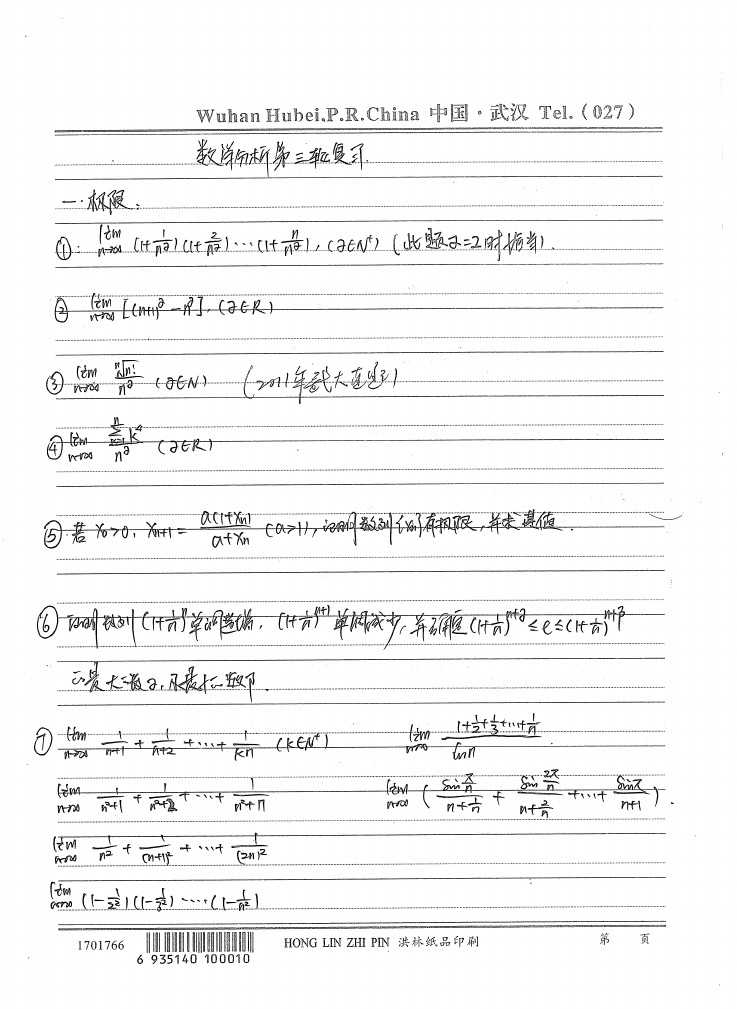 Wuhan Hubei.P.R.China 中国·武汉 Tel.(027)
数学分析第三轮复习.
一. 极限:
①: lim n→∞ (1+1/n^α)(1+2/n^α)···(1+n/n^α), (α∈N⁺) (此题α=2时恰当).
② lim n→∞ [(n+1)^α - n^α], (α∈R)
③ lim n→∞ ⁿ√n!/n^α (α∈N) (2011年武大真题)
④ lim n→∞ ∑_{k=1}^{n} k⁴/n^α (α∈R)
⑤ 若 x₀>0, x_{n+1} = a(1+x_n)/(a+x_n) (a>1), 证明数列{x_n}有极限, 并求其值.
⑥ 证明数列 (1+1/n)^n 单调递增, (1+1/n)^{n+1} 单调减少, 并确定 (1+1/n)^{n+α} ≤ e ≤ (1+1/n)^{n+β}
的最大数α, 及最小数β.
⑦ lim n→∞ 1/(n+1) + 1/(n+2) + ··· + 1/(kn) (k∈N⁺) lim n→∞ (1+1/2+1/3+···+1/n)/ln n
lim n→∞ 1/(n²+1) + 1/(n²+2) + ··· + 1/(n²+n) lim n→∞ ( sin(π/n)/(n+1/n) + sin(2π/n)/(n+2/n) + ··· + sinπ/(n+1) ).
lim n→∞ 1/n² + 1/(n+1)² + ··· + 1/(2n)²
lim n→∞ (1-1/2²)(1-1/3²)·····(1-1/n²)
1701766 HONG LIN ZHI PIN 洪林纸品印刷 第 页
6 935140 100010